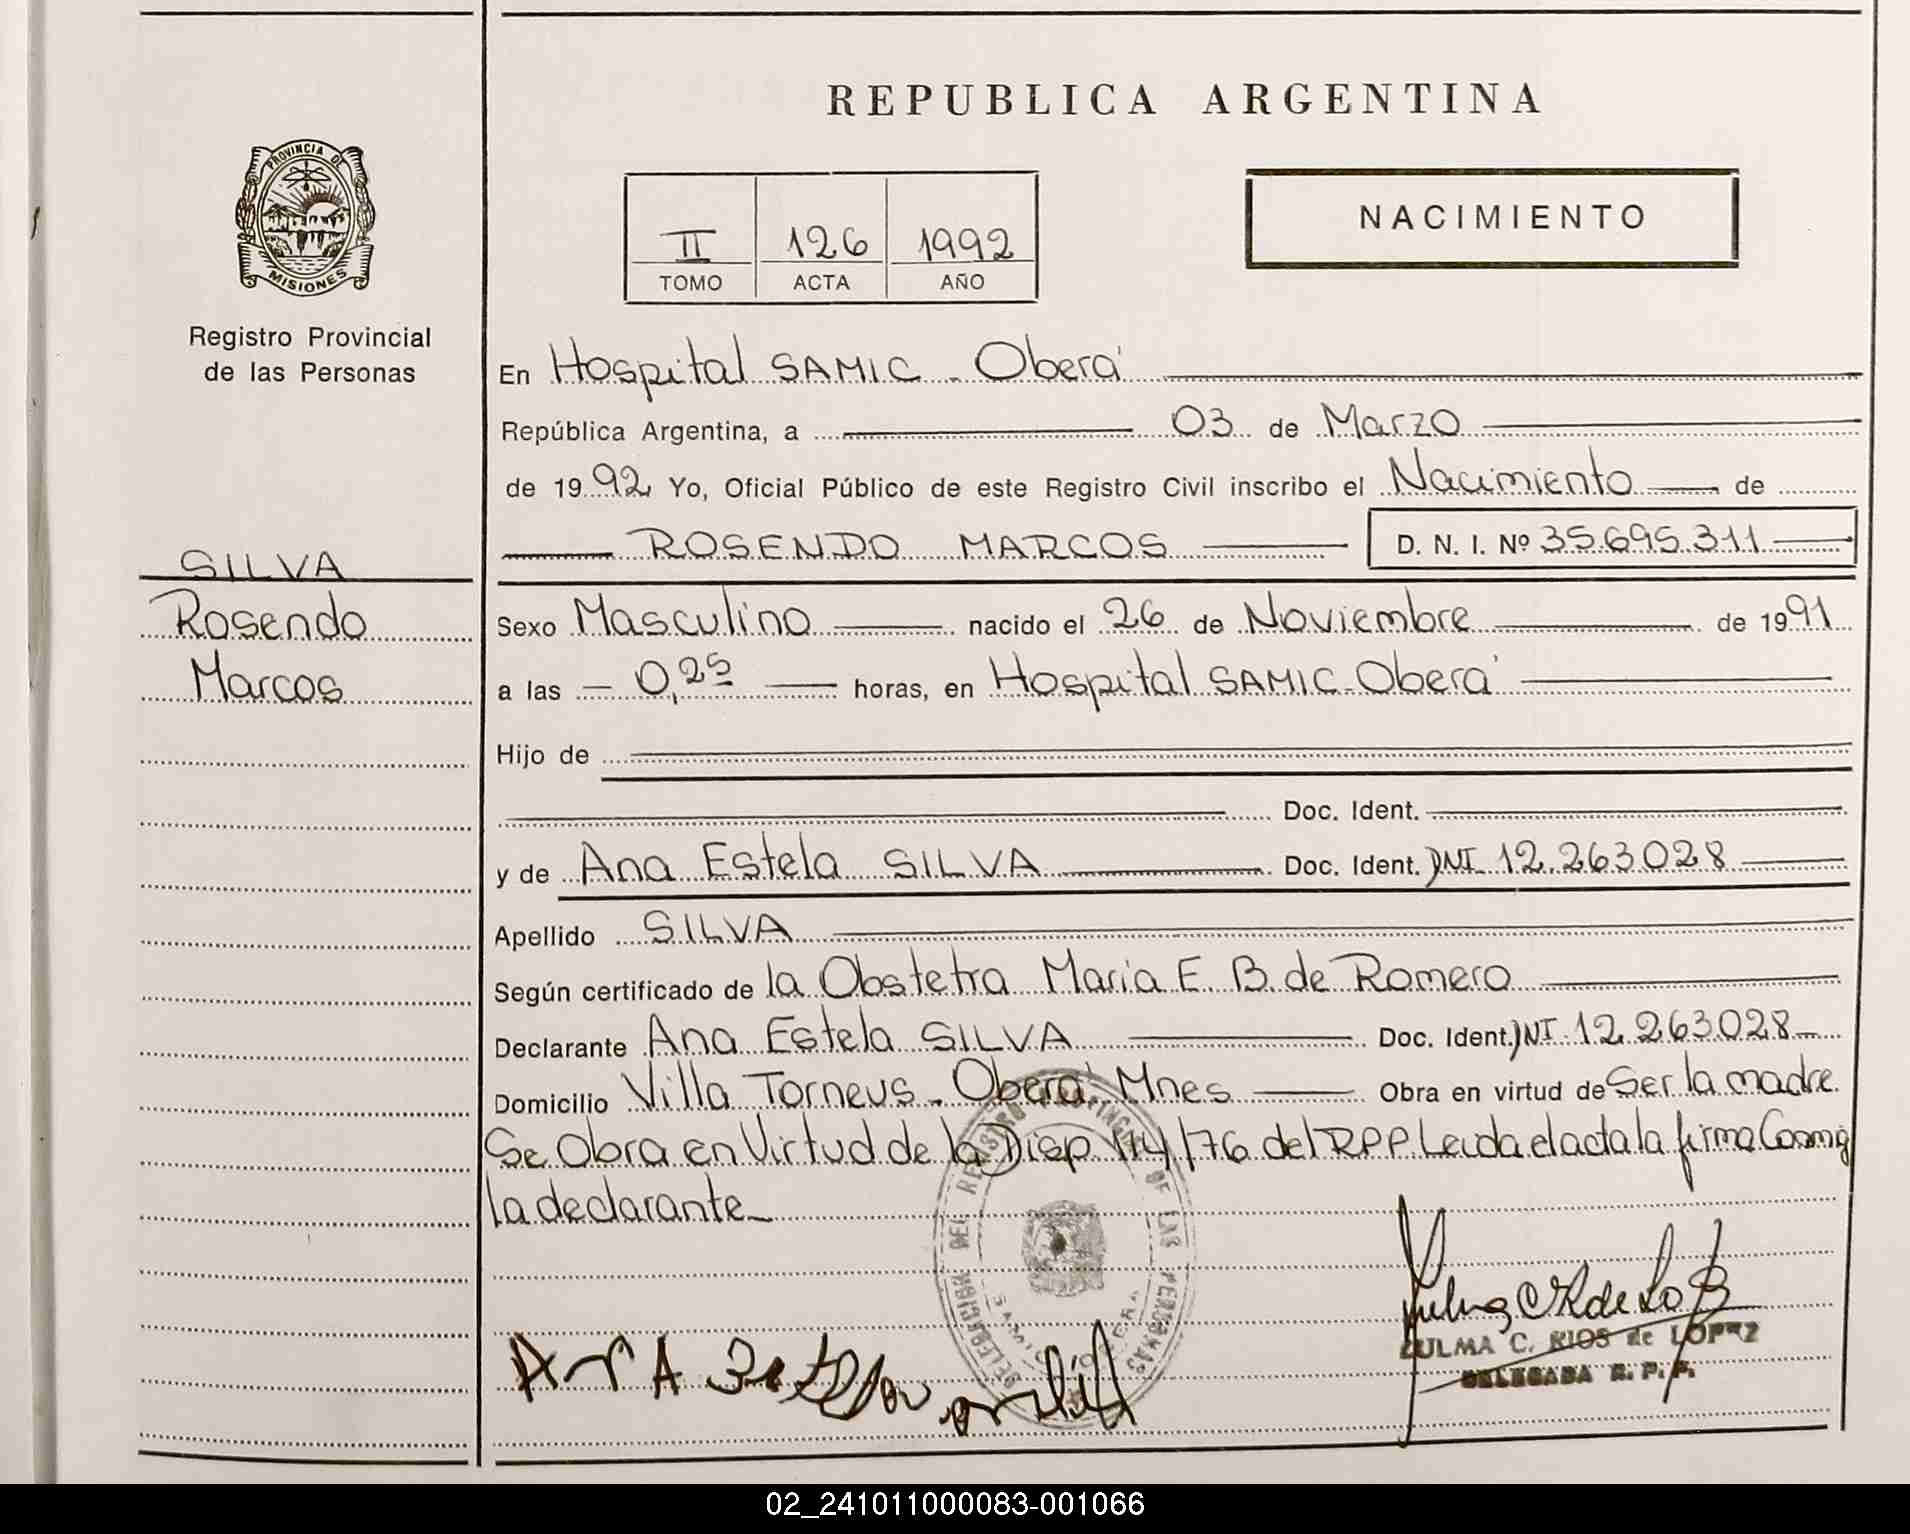 REPUBLICA ARGENTINA
PROVINCIA DE
MISIONES
Registro Provincial
de las Personas
II 126 1992
TOMO ACTA AÑO
NACIMIENTO
En Hospital SAMIC - Oberá
República Argentina, a 03 de Marzo
de 1992 Yo, Oficial Público de este Registro Civil inscribo el Nacimiento de
ROSENDO MARCOS D. N. I. Nº 35.695.311
SILVA
Rosendo
Marcos
Sexo Masculino nacido el 26 de Noviembre de 1991
a las 0,25 horas, en Hospital SAMIC - Oberá
Hijo de
Doc. Ident.
y de Ana Estela SILVA Doc. Ident. DNI 12.263.028
Apellido SILVA
Según certificado de la Obstetra Maria E. B. de Romero
Declarante Ana Estela SILVA Doc. Ident. DNI 12.263.028
Domicilio Villa Torneus - Oberá Mnes Obra en virtud de Ser la madre.
Se Obra en Virtud de la Disp 114/76 del RPP Leida el acta la firma Conmig
la declarante
DELEGACION DEL REGISTRO PROVINCIAL DE LAS PERSONAS
SAMIC OBERA
ZULMA C. RIOS de LOPEZ
DELEGADA R. P. P.
02_241011000083-001066